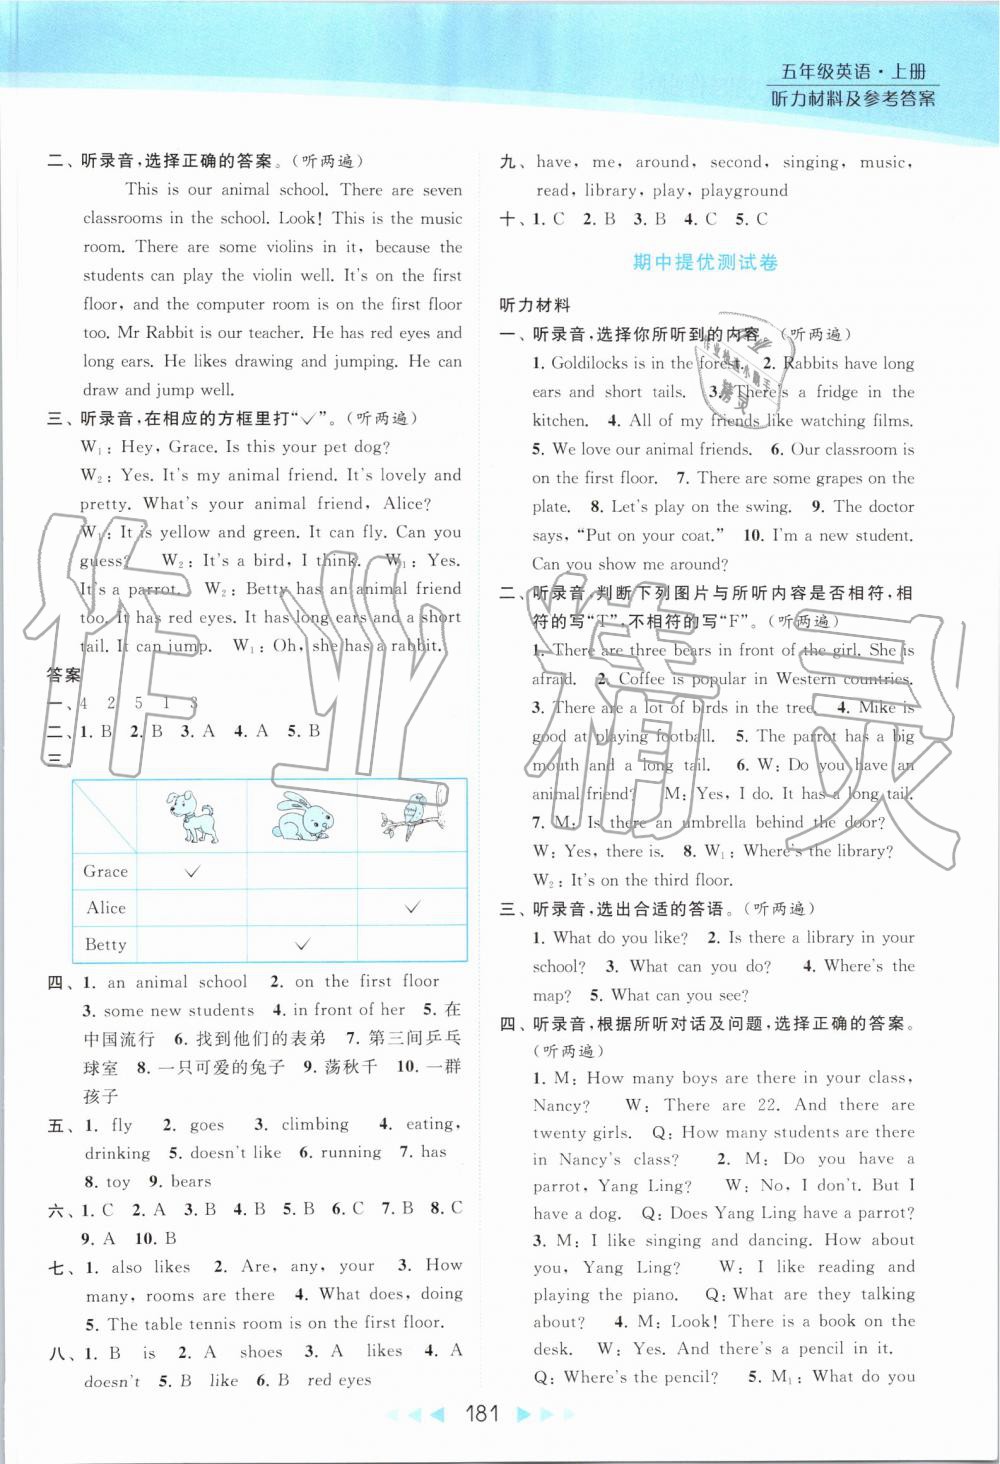 五年级英语·上册
听力材料及参考答案
二、听录音,选择正确的答案。(听两遍)
This is our animal school. There are seven
classrooms in the school. Look! This is the music
room. There are some violins in it, because the
students can play the violin well. It is on the first
floor, and the computer room is on the first floor
too. Mr Rabbit is our teacher. He has red eyes and
long ears. He likes drawing and jumping. He can
draw and jump well.
三、听录音,在相应的方框里打“✓”。(听两遍)
W₁: Hey, Grace. Is this your pet dog?
W₂: Yes. It's my animal friend. It's lovely and
pretty. What's your animal friend, Alice?
W₁: It is yellow and green. It can fly. Can you
guess? W₂: It's a bird, I think. W₁: Yes.
It's a parrot. W₂: Betty has an animal friend
too. It has red eyes. It has long ears and a short
tail. It can jump. W₁: Oh, she has a rabbit.
答案
一、4 2 5 1 3
二、1. B 2. B 3. A 4. A 5. B
三、
Grace ✓
Alice ✓
Betty ✓
四、1. an animal school 2. on the first floor
3. some new students 4. in front of her 5. 在
中国流行 6. 找到他们的表弟 7. 第三间乒乓
球室 8. 一只可爱的兔子 9. 荡秋千 10. 一群
孩子
五、1. fly 2. goes 3. climbing 4. eating,
drinking 5. doesn't like 6. running 7. has
8. toy 9. bears
六、1. C 2. A 3. B 4. B 5. B 6. C 7. B 8. C
9. A 10. B
七、1. also likes 2. Are, any, your 3. How
many, rooms are there 4. What does, doing
5. The table tennis room is on the first floor.
八、1. B is 2. A shoes 3. A likes 4. A
doesn't 5. B like 6. B red eyes
九、have, me, around, second, singing, music,
read, library, play, playground
十、1. C 2. B 3. B 4. C 5. C
期中提优测试卷
听力材料
一、听录音,选择你所听到的内容。(听两遍)
1. Goldilocks is in the forest. 2. Rabbits have long
ears and short tails. 3. There's a fridge in the
kitchen. 4. All of my friends like watching films.
5. We love our animal friends. 6. Our classroom is
on the first floor. 7. There are some grapes on the
plate. 8. Let's play on the swing. 9. The doctor
says, “Put on your coat.” 10. I'm a new student.
Can you show me around?
二、听录音,判断下列图片与所听内容是否相符,相
符的写“T”,不相符的写“F”。(听两遍)
1. There are three bears in front of the girl. She is
afraid. 2. Coffee is popular in Western countries.
3. There are a lot of birds in the tree. 4. Mike is
good at playing football. 5. The parrot has a big
mouth and a long tail. 6. W: Do you have an
animal friend? M: Yes, I do. It has a long tail.
7. M: Is there an umbrella behind the door?
W: Yes, there is. 8. W₁: Where's the library?
W₂: It's on the third floor.
三、听录音,选出合适的答语。(听两遍)
1. What do you like? 2. Is there a library in your
school? 3. What can you do? 4. Where's the
map? 5. What can you see?
四、听录音,根据所听对话及问题,选择正确的答案。
(听两遍)
1. M: How many boys are there in your class,
Nancy? W: There are 22. And there are
twenty girls. Q: How many students are there
in Nancy's class? 2. M: Do you have a
parrot, Yang Ling? W: No, I don't. But I
have a dog. Q: Does Yang Ling have a parrot?
3. M: I like singing and dancing. How about
you, Yang Ling? W: I like reading and
playing the piano. Q: What are they talking
about? 4. M: Look! There is a book on the
desk. W: Yes. And there's a pencil in it.
Q: Where's the pencil? 5. M₁: What would you
181
作业精灵